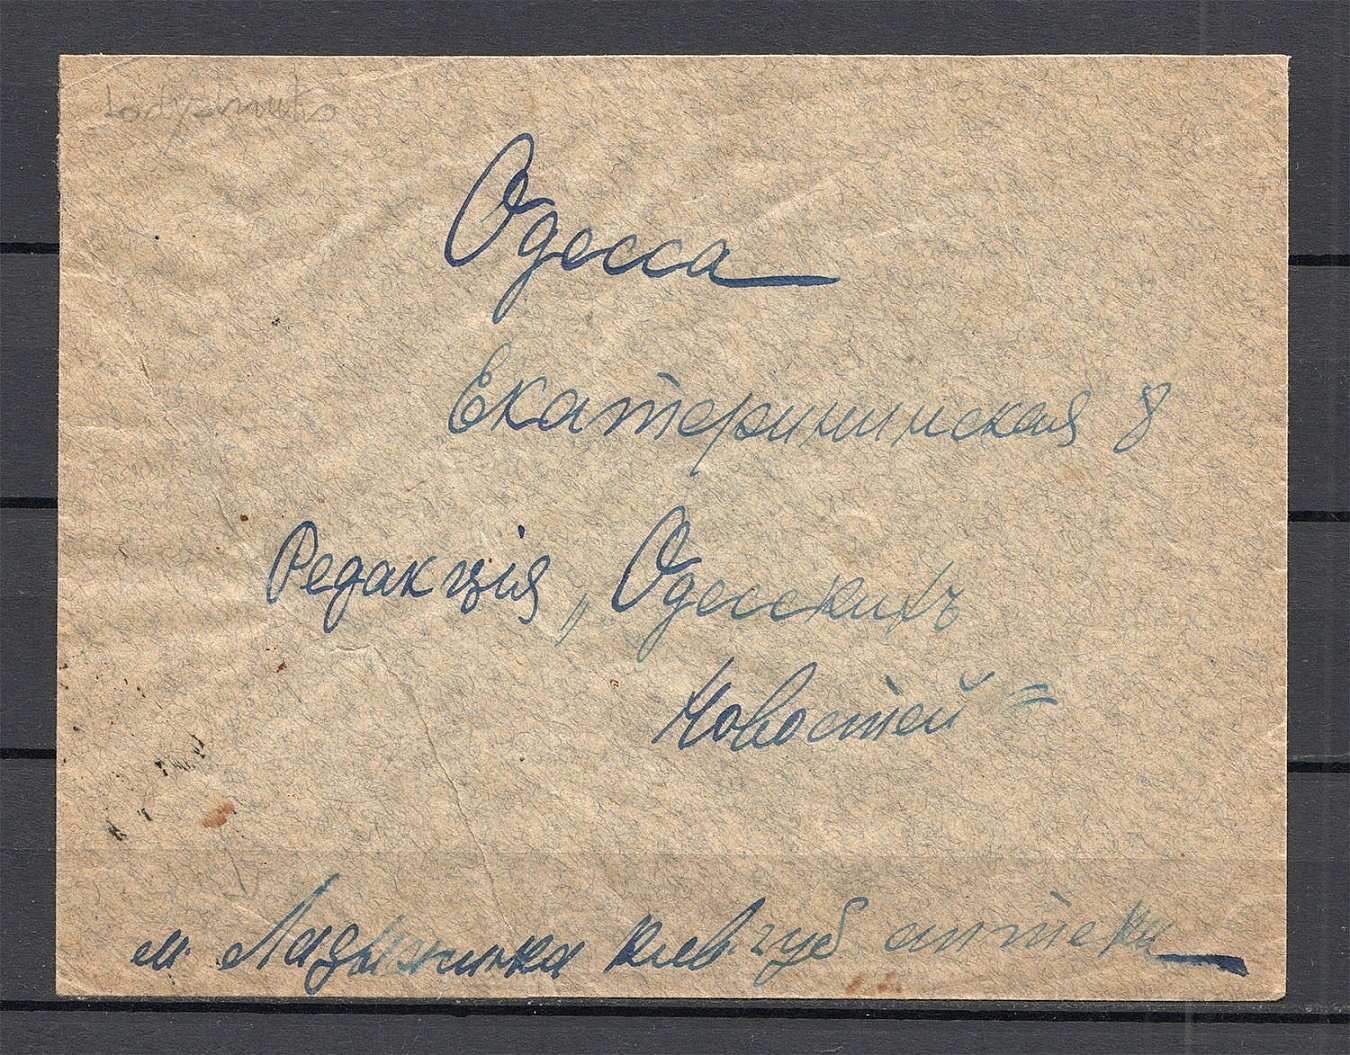 Ladyzhinka
Одесса
Екатерининская 8
Редакція „Одесскихъ
Новостей"
м. Ладыжинка киев. губ аптека